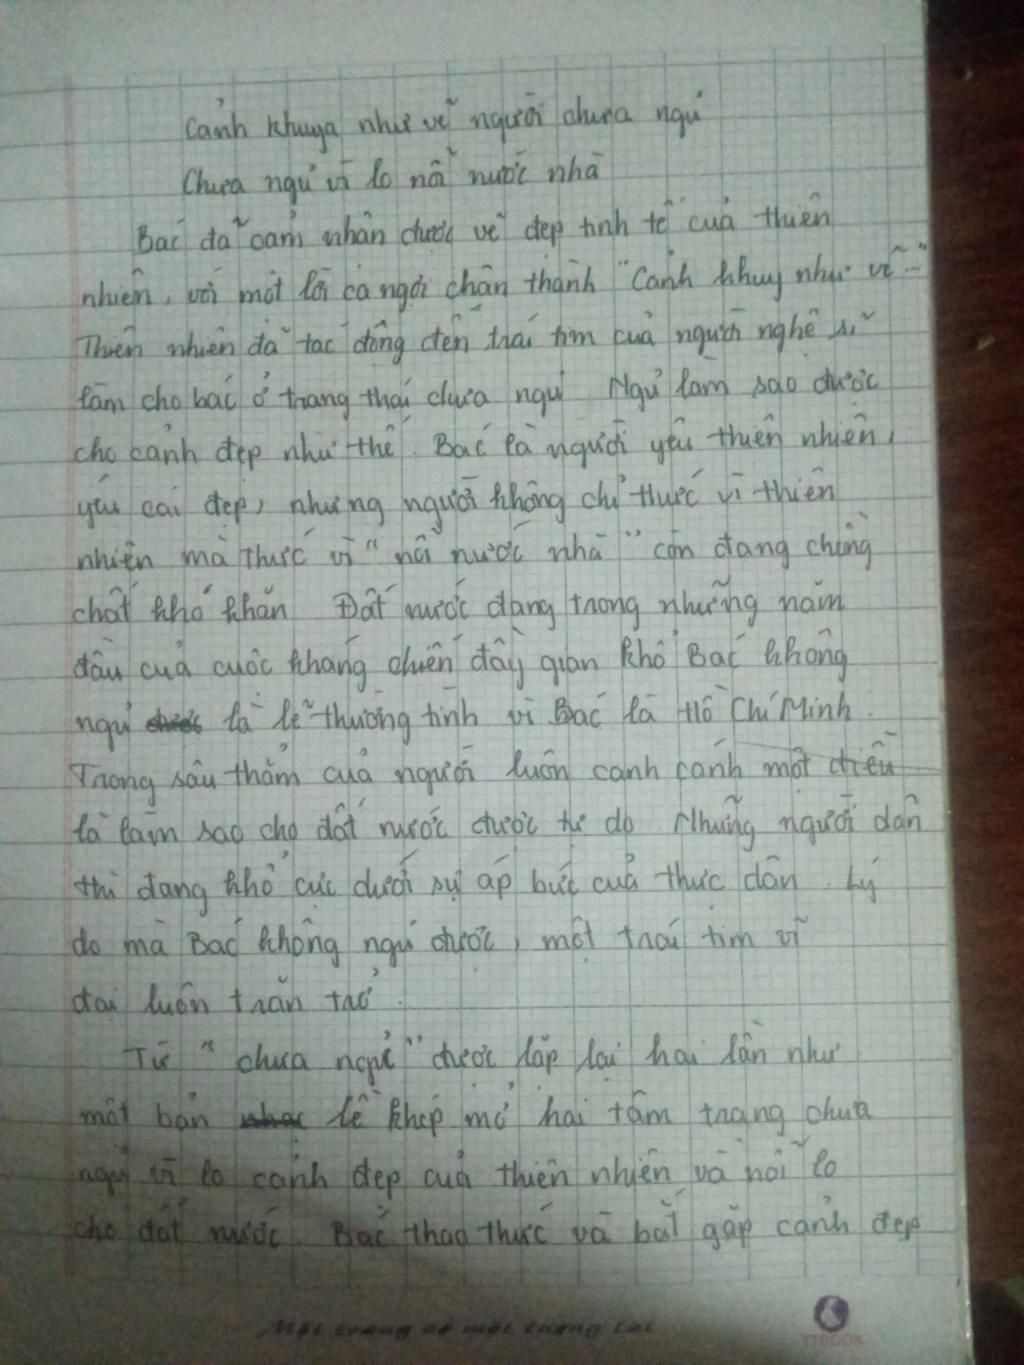 Cảnh khuya như vẽ người chưa ngủ
Chưa ngủ vì lo nỗi nước nhà
Bác đã cảm nhận được vẻ đẹp tinh tế của thiên
nhiên, với một lời ca ngợi chân thành "Cảnh khuy như vẽ"
Thiên nhiên đã tác động đến trái tim của người nghệ sĩ
làm cho bác ở trạng thái chưa ngủ Ngủ làm sao được
cho cảnh đẹp như thế. Bác là người yêu thiên nhiên,
yêu cái đẹp, nhưng người không chỉ thức vì thiên
nhiên mà thức vì "nỗi nước nhà" còn đang chồng
chất khó khăn Đất nước đang trong những năm
đầu của cuộc kháng chiến đầy gian khổ Bác không
ngủ là lẽ thường tình vì Bác là Hồ Chí Minh.
Trong sâu thẳm của người luôn canh cánh một điều
là làm sao cho đất nước được tự do. Những người dân
thì đang khổ cực dưới sự áp bức của thực dân. Lý
do mà Bác không ngủ được, một trái tim vĩ
đại luôn trăn trở.
Từ "chưa ngủ" được lặp lại hai lần như
một bản lề khép mở hai tâm trạng chưa
ngủ vì lo cảnh đẹp của thiên nhiên và nỗi lo
cho đất nước. Bác thao thức và bắt gặp cảnh đẹp
TTBOOK